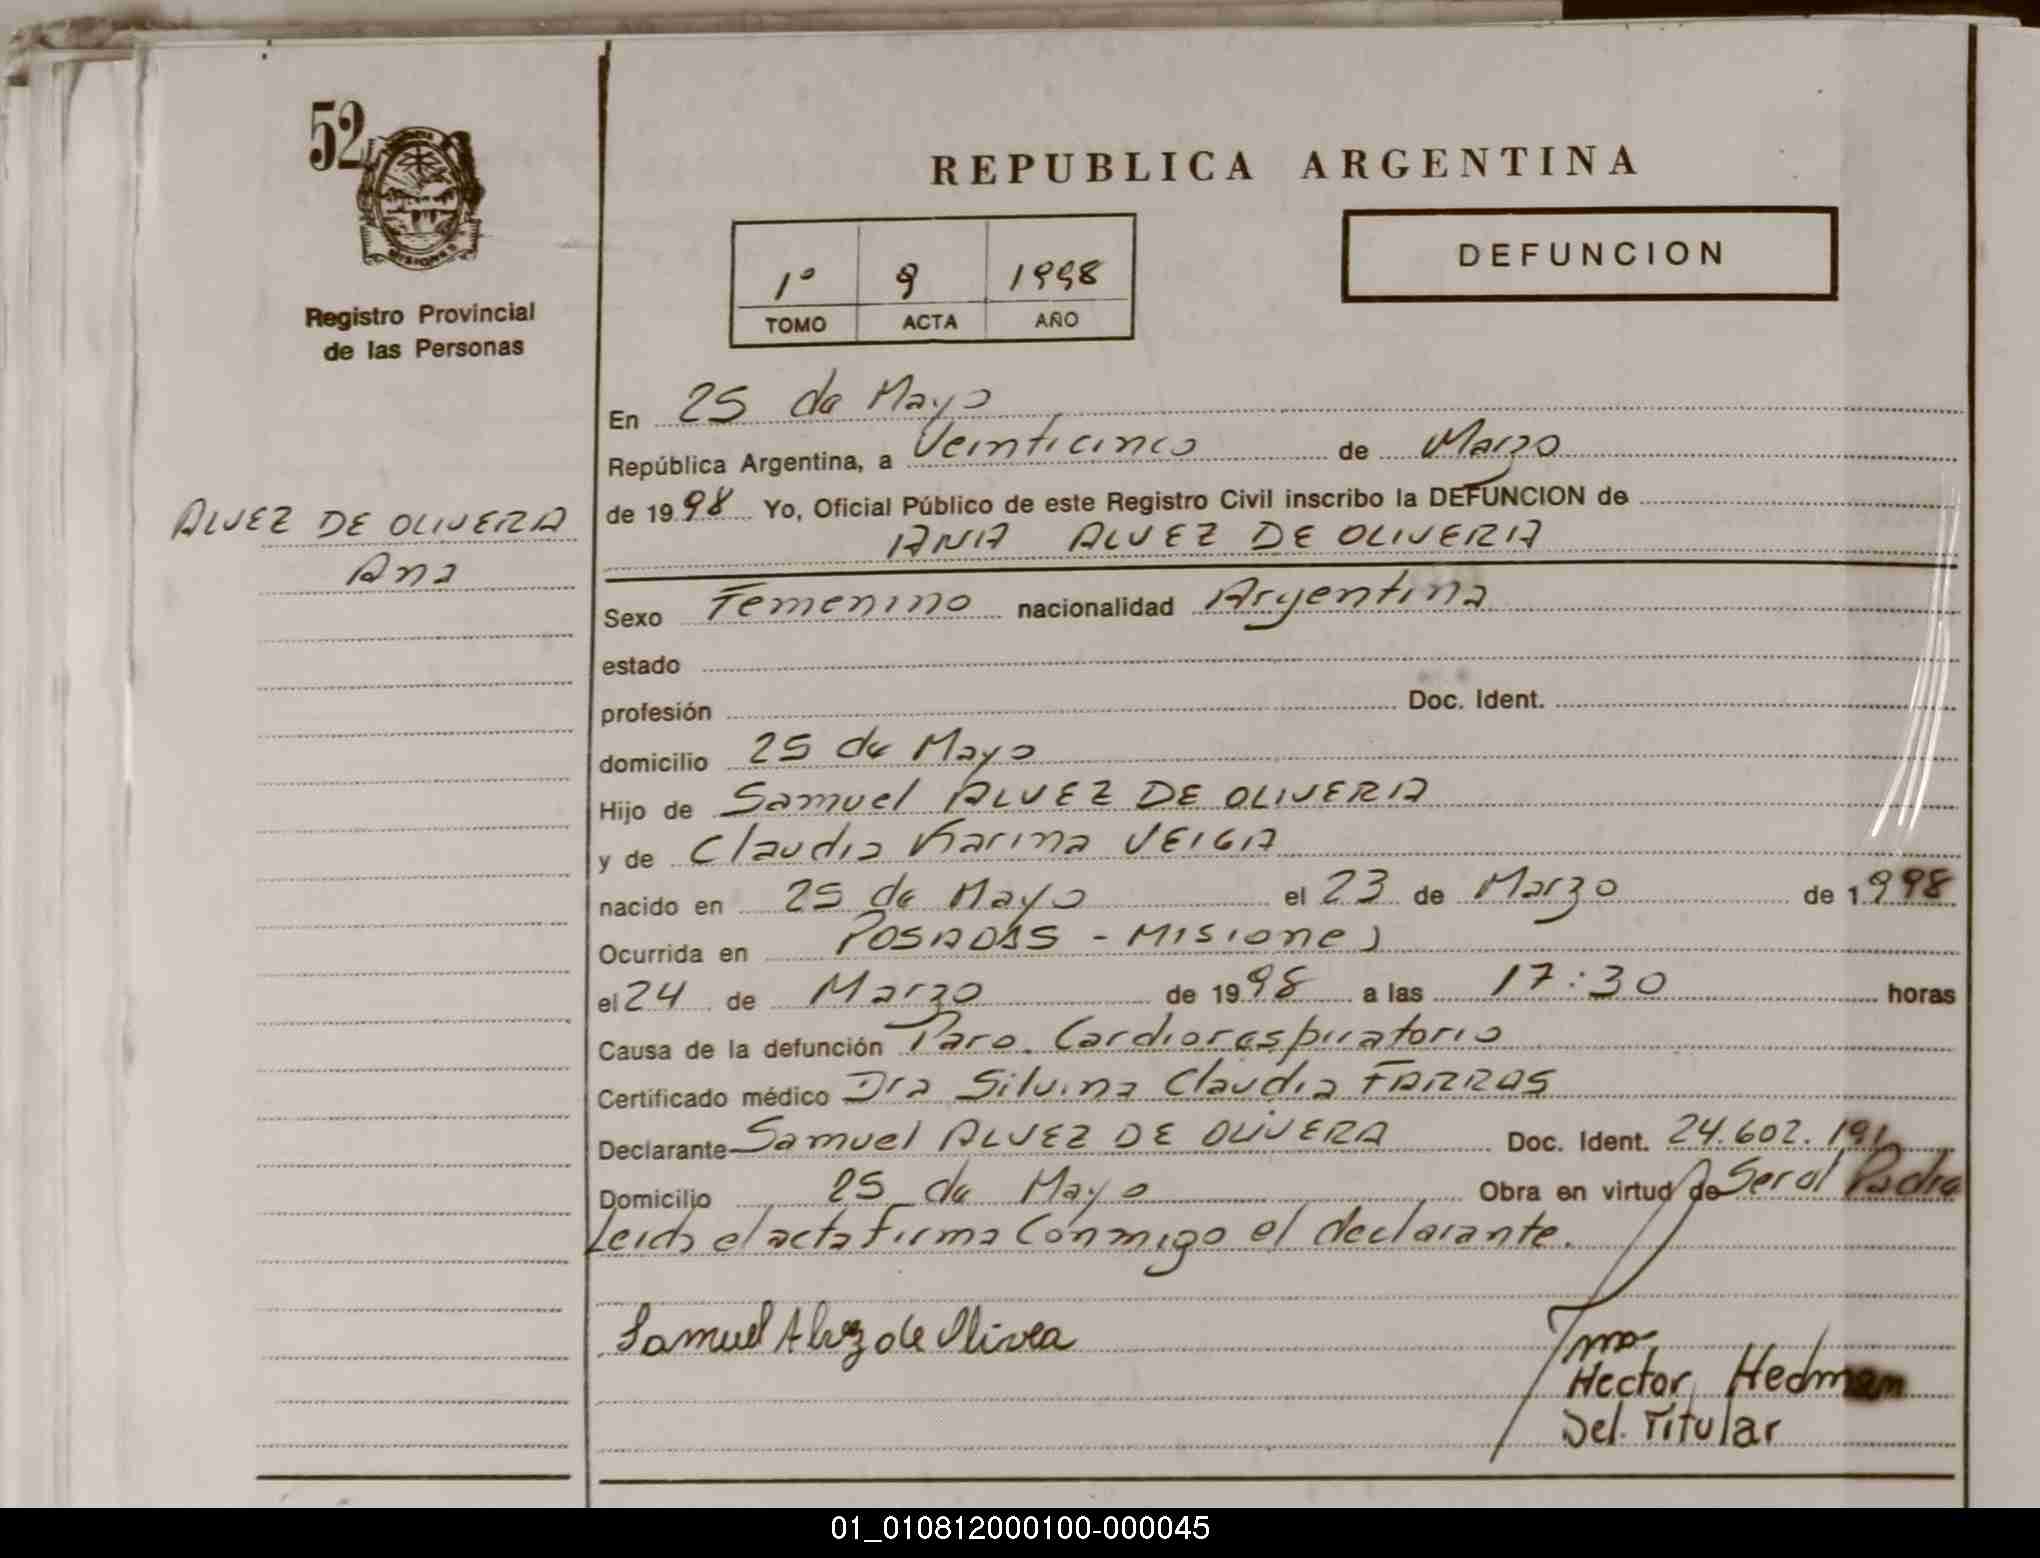 52
MISIONES
Registro Provincial
de las Personas
ALVEZ DE OLIVERA
Ana
REPUBLICA ARGENTINA
1º 9 1998
TOMO ACTA AÑO
DEFUNCION
En 25 de Mayo
República Argentina, a Veinticinco de Marzo
de 1998 Yo, Oficial Público de este Registro Civil inscribo la DEFUNCION de
ANA ALVEZ DE OLIVERIA
Sexo Femenino nacionalidad Argentina
estado
profesión Doc. Ident.
domicilio 25 de Mayo
Hijo de Samuel ALVEZ DE OLIVERIA
y de Claudia Karina VEIGA
nacido en 25 de Mayo el 23 de Marzo de 1998
Ocurrida en POSADAS - MISIONES
el 24 de Marzo de 1998 a las 17:30 horas
Causa de la defunción Paro Cardiorespiratorio
Certificado médico Dra Silvina Claudia FARRAS
Declarante Samuel ALVEZ DE OLIVERA Doc. Ident. 24.602.191
Domicilio 25 de Mayo Obra en virtud de Ser el Padre
Leida el acta firma Conmigo el declarante.
Samuel Alvez de Olivera
Hector Hedman
Del. Titular
01_010812000100-000045